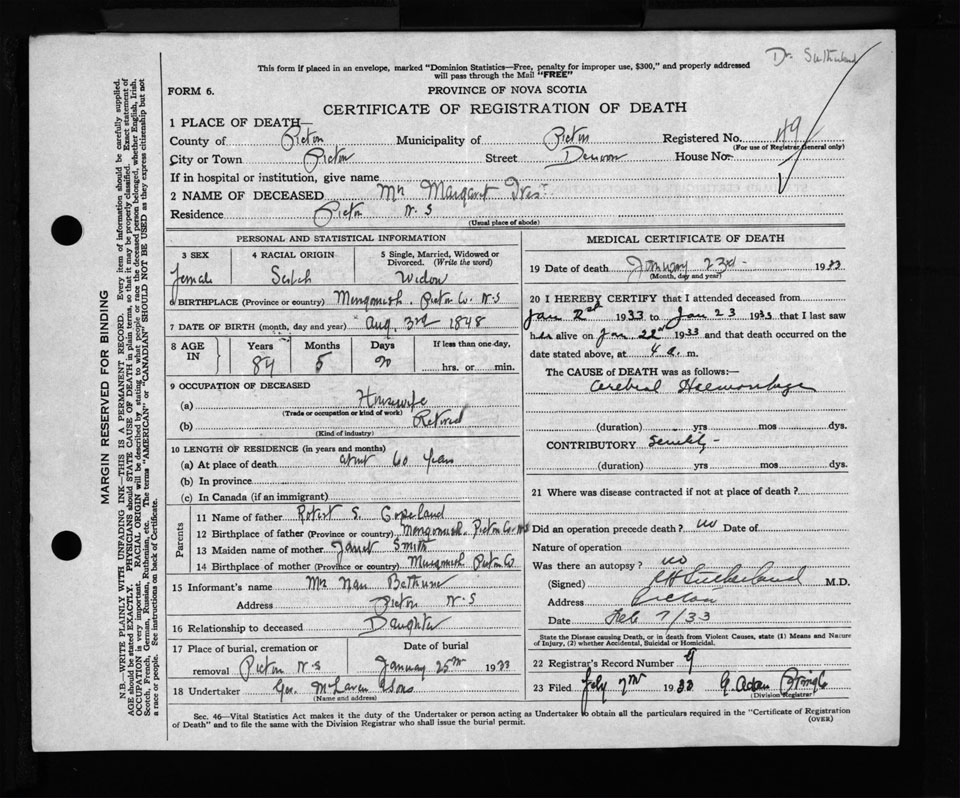 Dr. Sutherland
This form if placed in an envelope, marked "Dominion Statistics—Free, penalty for improper use, $300," and properly addressed
will pass through the Mail "FREE"
FORM 6.
PROVINCE OF NOVA SCOTIA
CERTIFICATE OF REGISTRATION OF DEATH
1 PLACE OF DEATH—
County of Pictou Municipality of Pictou Registered No. 49
(For use of Registrar General only)
City or Town Pictou Street Denoon House No.
If in hospital or institution, give name
2 NAME OF DECEASED Mrs Margaret Ives
Residence Pictou N.S
(Usual place of abode)
PERSONAL AND STATISTICAL INFORMATION
3 SEX
4 RACIAL ORIGIN
5 Single, Married, Widowed or
Divorced. (Write the word)
Female Scotch Widow
6 BIRTHPLACE (Province or country) Merigomish. Pictou Co. N.S
7 DATE OF BIRTH (month, day and year) Aug. 3rd 1848
8 AGE IN
Years Months Days If less than one-day,
84 5 20 hrs. or min.
9 OCCUPATION OF DECEASED
(a) Housewife
(Trade or occupation or kind of work)
(b) Retired
(Kind of industry)
10 LENGTH OF RESIDENCE (in years and months)
(a) At place of death about 60 years
(b) In province
(c) In Canada (if an immigrant)
Parents
11 Name of father Robert S. Copeland
12 Birthplace of father (Province or country) Merigomish. Pictou Co. N.S
13 Maiden name of mother Janet Smith
14 Birthplace of mother (Province or country) Merigomish Pictou Co
15 Informant's name Mrs Nan Bethune
Address Pictou N.S
16 Relationship to deceased Daughter
17 Place of burial, cremation or Date of burial
removal Pictou N.S January 25th 1933
18 Undertaker Geo. McLaren & Sons
(Name and address)
MEDICAL CERTIFICATE OF DEATH
19 Date of death January 23rd 1933
(Month, day and year)
20 I HEREBY CERTIFY that I attended deceased from
Jan 2st 1933 to Jan 23 1933 that I last saw
her alive on Jan 22nd 1933 and that death occurred on the
date stated above, at 4 a. m.
The CAUSE of DEATH was as follows:—
Cerebral Haemorrhage
(duration) yrs mos dys.
CONTRIBUTORY Senility
(duration) yrs mos dys.
21 Where was disease contracted if not at place of death?
Did an operation precede death? no Date of
Nature of operation
Was there an autopsy? no
(Signed) Sutherland M.D.
Address Pictou
Date Feb 7/33
State the Disease causing Death, or in death from Violent Causes, state (1) Means and Nature
of Injury, (2) whether Accidental, Suicidal or Homicidal.
22 Registrar's Record Number 9
23 Filed Feby 7th 1933 G. Adam
Division Registrar
Sec. 46—Vital Statistics Act makes it the duty of the Undertaker or person acting as Undertaker to obtain all the particulars required in the "Certificate of Registration
of Death" and to file the same with the Division Registrar who shall issue the burial permit.
(OVER)
MARGIN RESERVED FOR BINDING
N.B.—WRITE PLAINLY WITH UNFADING INK—THIS IS A PERMANENT RECORD. Every item of information should be carefully supplied.
AGE should be stated EXACTLY. PHYSICIANS should STATE CAUSE OF DEATH in plain terms, so that it may be properly classified. Exact statement of
OCCUPATION is very important. RACIAL ORIGIN will be described by stating to what people or race the deceased person belonged, whether English, Irish,
Scotch, French, German, Russian, Ruthenian, etc. The terms "AMERICAN" or "CANADIAN" SHOULD NOT BE USED as they express citizenship but not
a race or people. See instructions on back of Certificate.